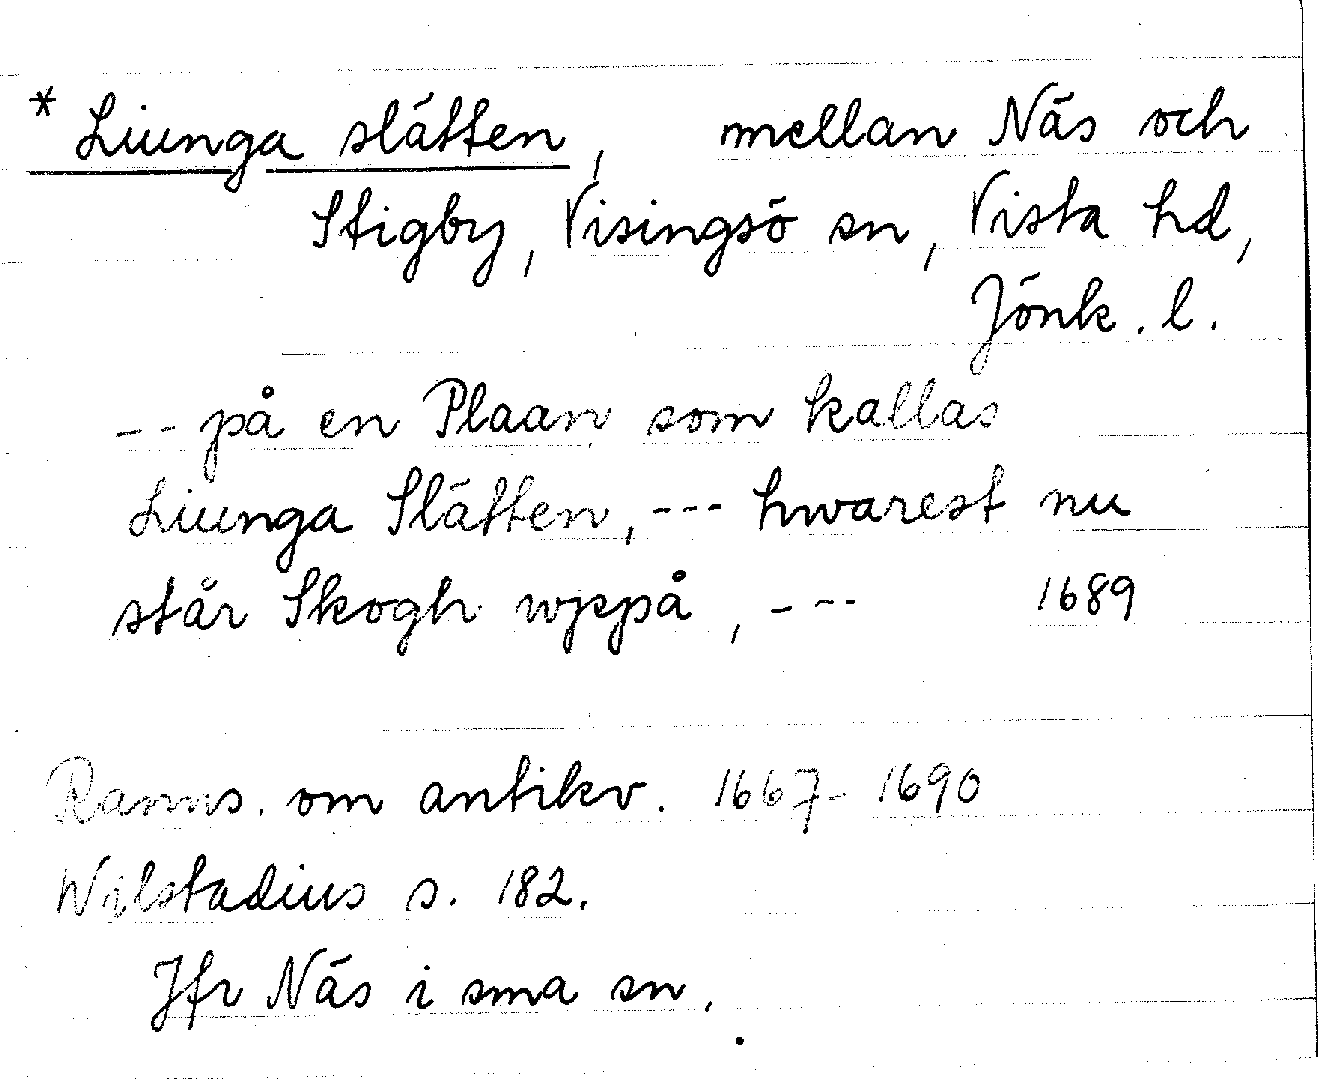 * Liunga slätten, mellan Näs och
Stigby, Visingsö sn, Vista hd,
Jönk. l.
-- på en Plaan som kallas
Liunga Slätten, --- hwarest nu
står Skogh wppå, --- 1689
Ranns. om antikv. 1667-1690
Wilstadius s. 182.
Jfr Näs i sma sn.